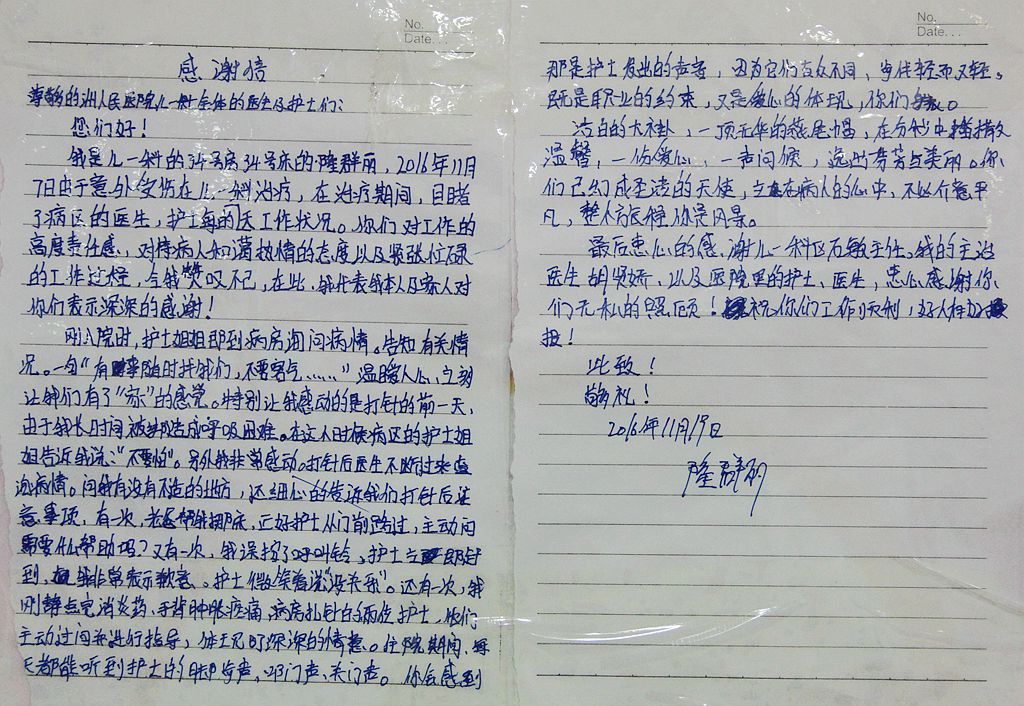 No.
Date...
感谢信
尊敬的州人民医院儿一科全体的医生及护士们:
您们好!
我是儿一科的34号房34号床的隆群丽,2016年11月
7日由于意外受伤在儿一科治疗,在治疗期间,目睹
了病区的医生,护士每的天工作状况。你们对工作的
高度责任感,对待病人如满热情的态度以及紧张忙碌
的工作过程,令我赞叹不已,在此,我代表我本人及家人对
你们表示深深的感谢!
刚入院时,护士姐姐即到病房询问病情。告知有关情
况。一句“有事随时找我们,不要客气……”温暖人心,立刻
让我们有了“家”的感觉。特别让我感动的是打针的前一天,
由于我长时间 造成呼吸困难。在这个时候病区的护士姐
姐告诉我说:“不要怕”。另外我非常感动。打针后医生不断过来查
询病情。问我有没有不适的地方,还细心的告诉我们打针后注
意事项,有一次, 正好护士从门前路过,主动问
需要什么帮助吗?又有一次,我误按了呼叫铃,护士立即赶
到,我非常表示歉意。护士微笑着说“没关系”。还有一次,我
刚静点完消炎药,手背肿胀疼痛,病房扎针的俩位护士,他们
主动过问并进行指导,体现了深深的情意。住院期间,每
天都能听到护士的脚步声,叩门声、关门声。你会感到
No.
Date...
那是护士发出的声音,因为它们与众不同,当你轻而又轻。
既是职业的约束,又是爱心的体现,你们 。
洁白的大褂,一顶无华的燕尾帽,在分秒中播撒
温馨,一份爱心,一声问候,溢出芳芳与美丽。你
们已幻成圣洁的天使,立在病人的心中,不必介意平
凡,整个旅程,你是风景。
最后忠心的感谢儿一科区万敏主任,我的主治
医生胡贤娇,以及医院里的护士、医生,忠心感谢你
们无私的照顾!祝你们工作顺利,好人有好
报!
此致!
敬礼!
2016年11月19日
隆群丽